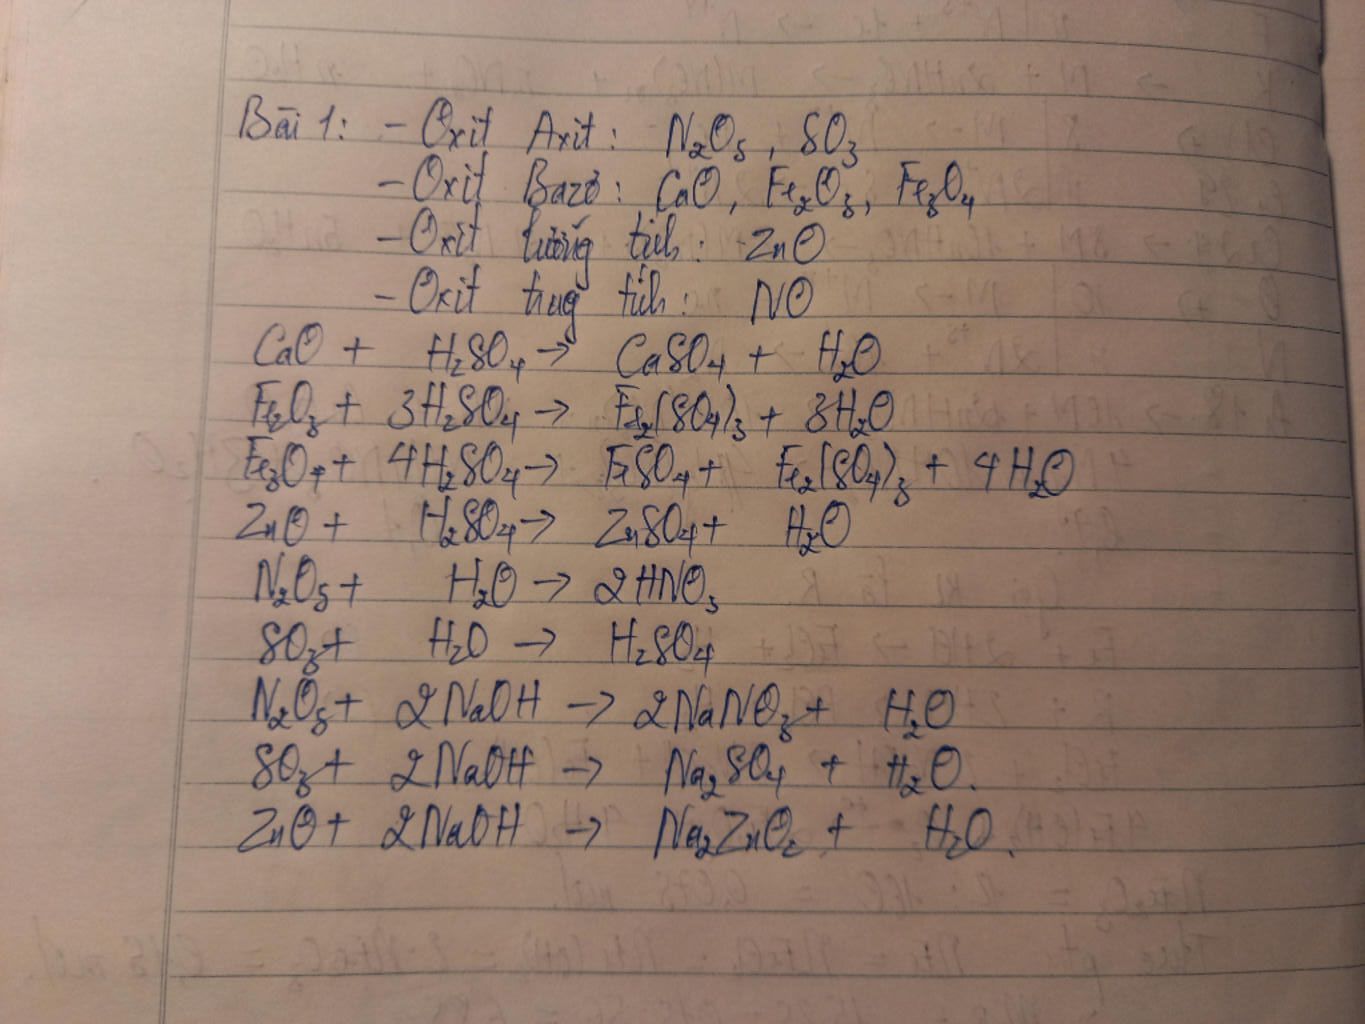 Bài 1: - Oxit Axit: N₂O₅, SO₃
- Oxit Bazơ: CaO, Fe₂O₃, Fe₃O₄
- Oxit lưỡng tích: ZnO
- Oxit trung tích: NO
CaO + H₂SO₄ → CaSO₄ + H₂O
Fe₂O₃ + 3H₂SO₄ → Fe₂(SO₄)₃ + 3H₂O
Fe₃O₄ + 4H₂SO₄ → FeSO₄ + Fe₂(SO₄)₃ + 4H₂O
ZnO + H₂SO₄ → ZnSO₄ + H₂O
N₂O₅ + H₂O → 2HNO₃
SO₃ + H₂O → H₂SO₄
N₂O₅ + 2NaOH → 2NaNO₃ + H₂O
SO₃ + 2NaOH → Na₂SO₄ + H₂O.
ZnO + 2NaOH → Na₂ZnO₂ + H₂O.